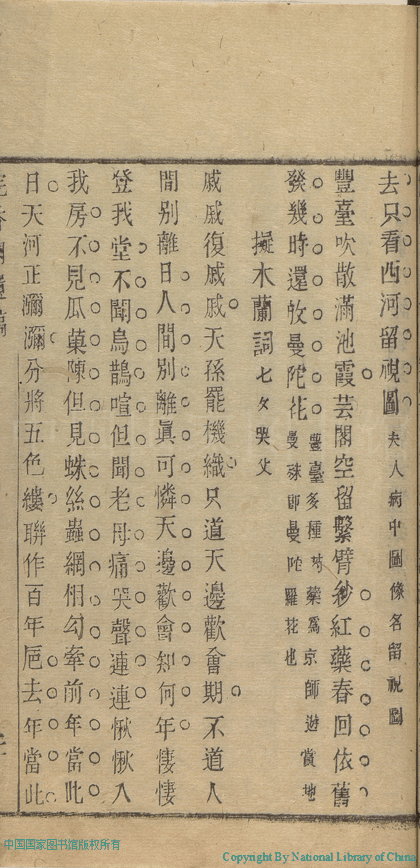 去只看西河留視圖夫人病中圖像名留視圖
豐臺吹散滿池霞芸閣空留繫臂紗紅藥春回依舊
發幾時還放曼陀花豐臺多種芍藥爲京師遊賞地曼殊即曼陀羅花也
擬木蘭詞七夕哭父
戚戚復戚戚天孫罷機織只道天邊歡會期不道人
間別離日人間別離眞可憐天邊歡會知何年悽悽
登我堂不聞烏鵲喧但聞老母痛哭聲連連愀愀入
我房不見瓜菓陳但見蛛絲蟲網相勾牽前年當此
日天河正瀰瀰分將五色縷聯作百年卮去年當此
中国国家图书馆版权所有
Copyright By National Library of China